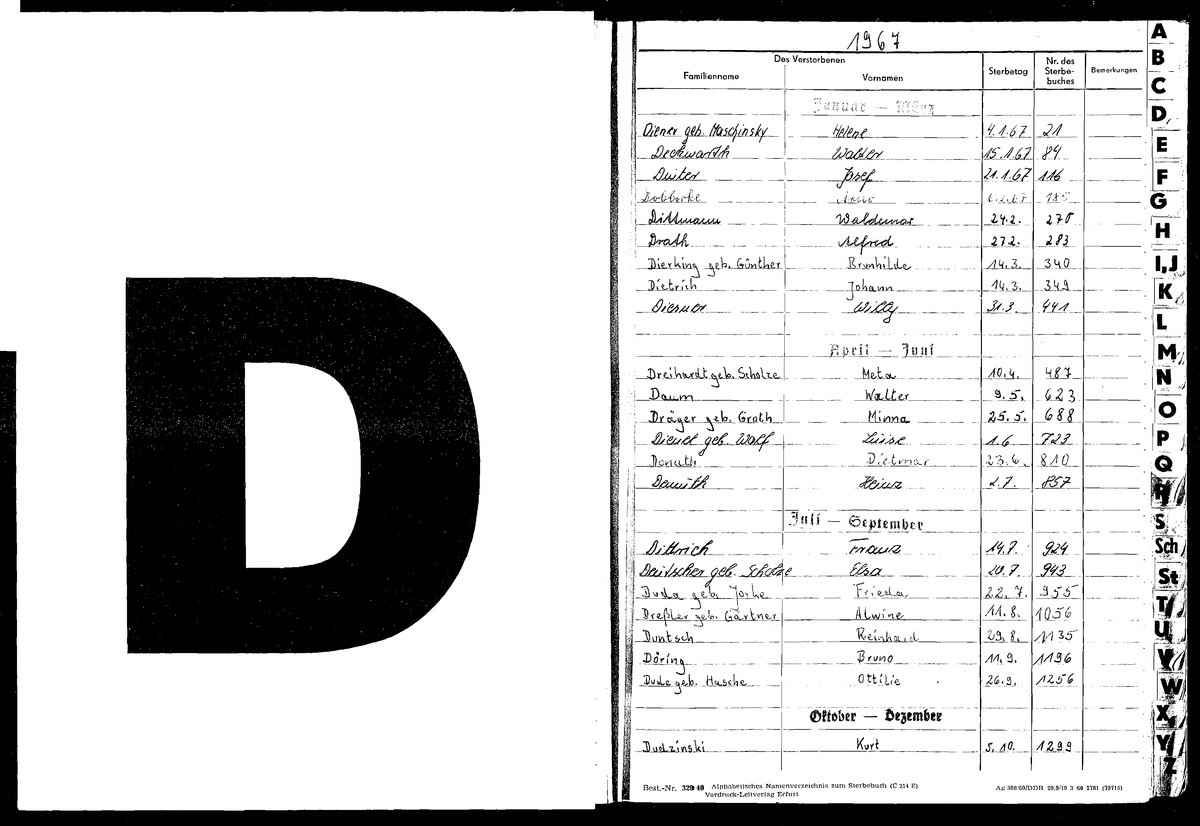 D
1967
Des Verstorbenen
Familienname Vornamen Sterbetag Nr. des Sterbe-buches Bemerkungen
Januar — März
Diener geb. Maschinsky Helene 4.1.67 21
Deckwarth Walter 15.1.67 84
Duiter Josef 21.1.67 116
6.2.67
Dittmann Waldemar 24.2. 270
Drath Alfred 27.2. 283
Dierking geb. Günther Brunhilde 14.3. 340
Dietrich Johann 14.3. 349
Willy 31.3. 441
April — Juni
Dreihardt geb. Scholze Meta 10.4. 487
Daum Walter 9.5. 623
Dräger geb. Groth Minna 25.5. 688
geb. Wolf Luise 1.6 723
Donath Dietmar 23.6. 810
Damith Heinz 2.7. 857
Juli — September
Dittrich Franz 14.7. 924
Deutscher geb. Scholze Elsa 20.7. 943
Duda geb. Frieda 22.7. 955
Dreßler geb. Gärtner Alwine 11.8. 1056
Duntsch Reinhard 29.8. 1135
Döring Bruno 11.9. 1196
Dude geb. Hasche Ottilie 26.9. 1256
Oktober — Dezember
Dudzinski Kurt 5.10. 1299
Best.-Nr. 320 40 Alphabetisches Namenverzeichnis zum Sterbebuch (C 214 E)
Vordruck-Leitverlag Erfurt
Ag 308/60/DDR
A
B
C
D
E
F
G
H
I,J
K
L
M
N
O
P
Q
R
S
Sch
St
T
U
V
W
X
Y
Z